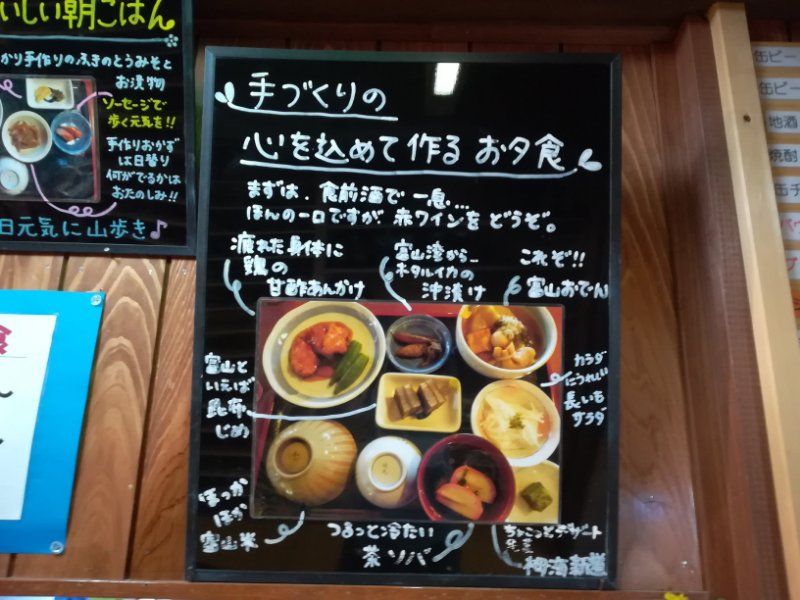 いしい朝ごはん
かり手作りのふきのとうみそと
お漬物
ソーセージで
歩く元気を!!
手作りおかず
は日替り
何がでるかは
おたのしみ!!
日元気に山歩き♪
手づくりの
心を込めて作る お夕食
まずは、食前酒で 一息...
ほんの一口ですが、赤ワインを どうぞ。
疲れた身体に
鶏の
甘酢あんかけ
富山湾から_
ホタルイカの
沖漬け
これぞ!!
富山おでん
富山と
いえば
昆布
じめ
カラダ
にうれしい
長いも
サラダ
ほっか
ほか
富山米
つるっと冷たい
茶ソバ
ちょこっとデザート
栂海新道
缶ビー
缶ビー
地酒
焼酎
缶チ